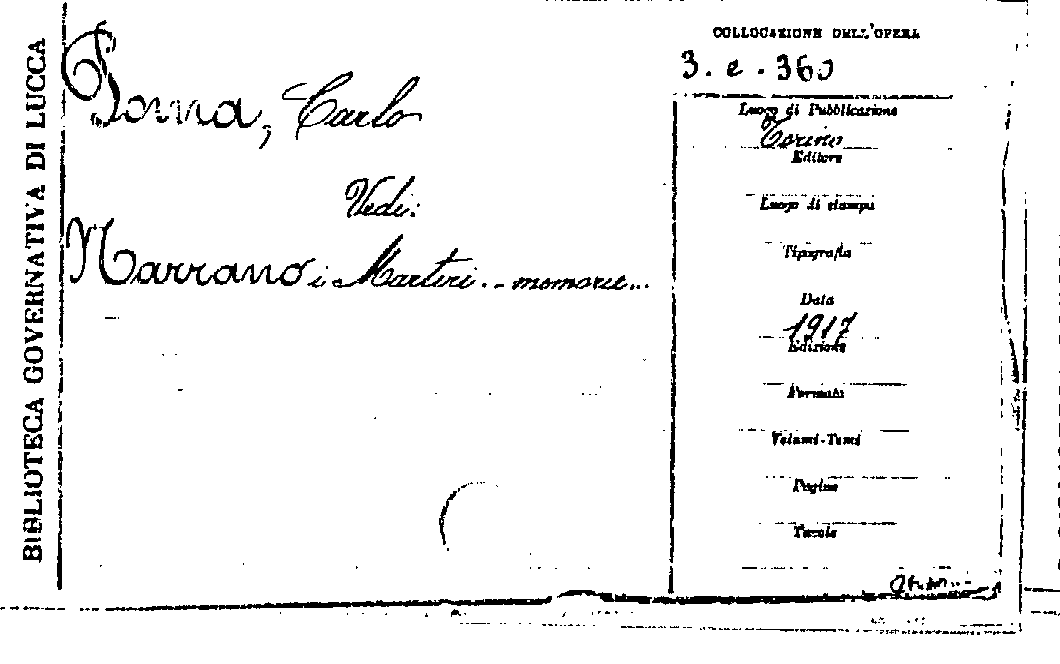 BIBLIOTECA GOVERNATIVA DI LUCCA
Poma, Carlo
Vedi:
Narrano i Martiri.. memorie...
COLLOCAZIONE DELL'OPERA
3. e. 360
Luogo di Pubblicazione
Torino
Editore
Luogo di stampa
Tipografia
Data
1917
Edizione
Formato
Volumi-Tomi
Pagine
Tavole